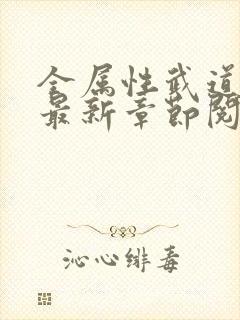 全属性武道
最新章节阅
沁心绯毒